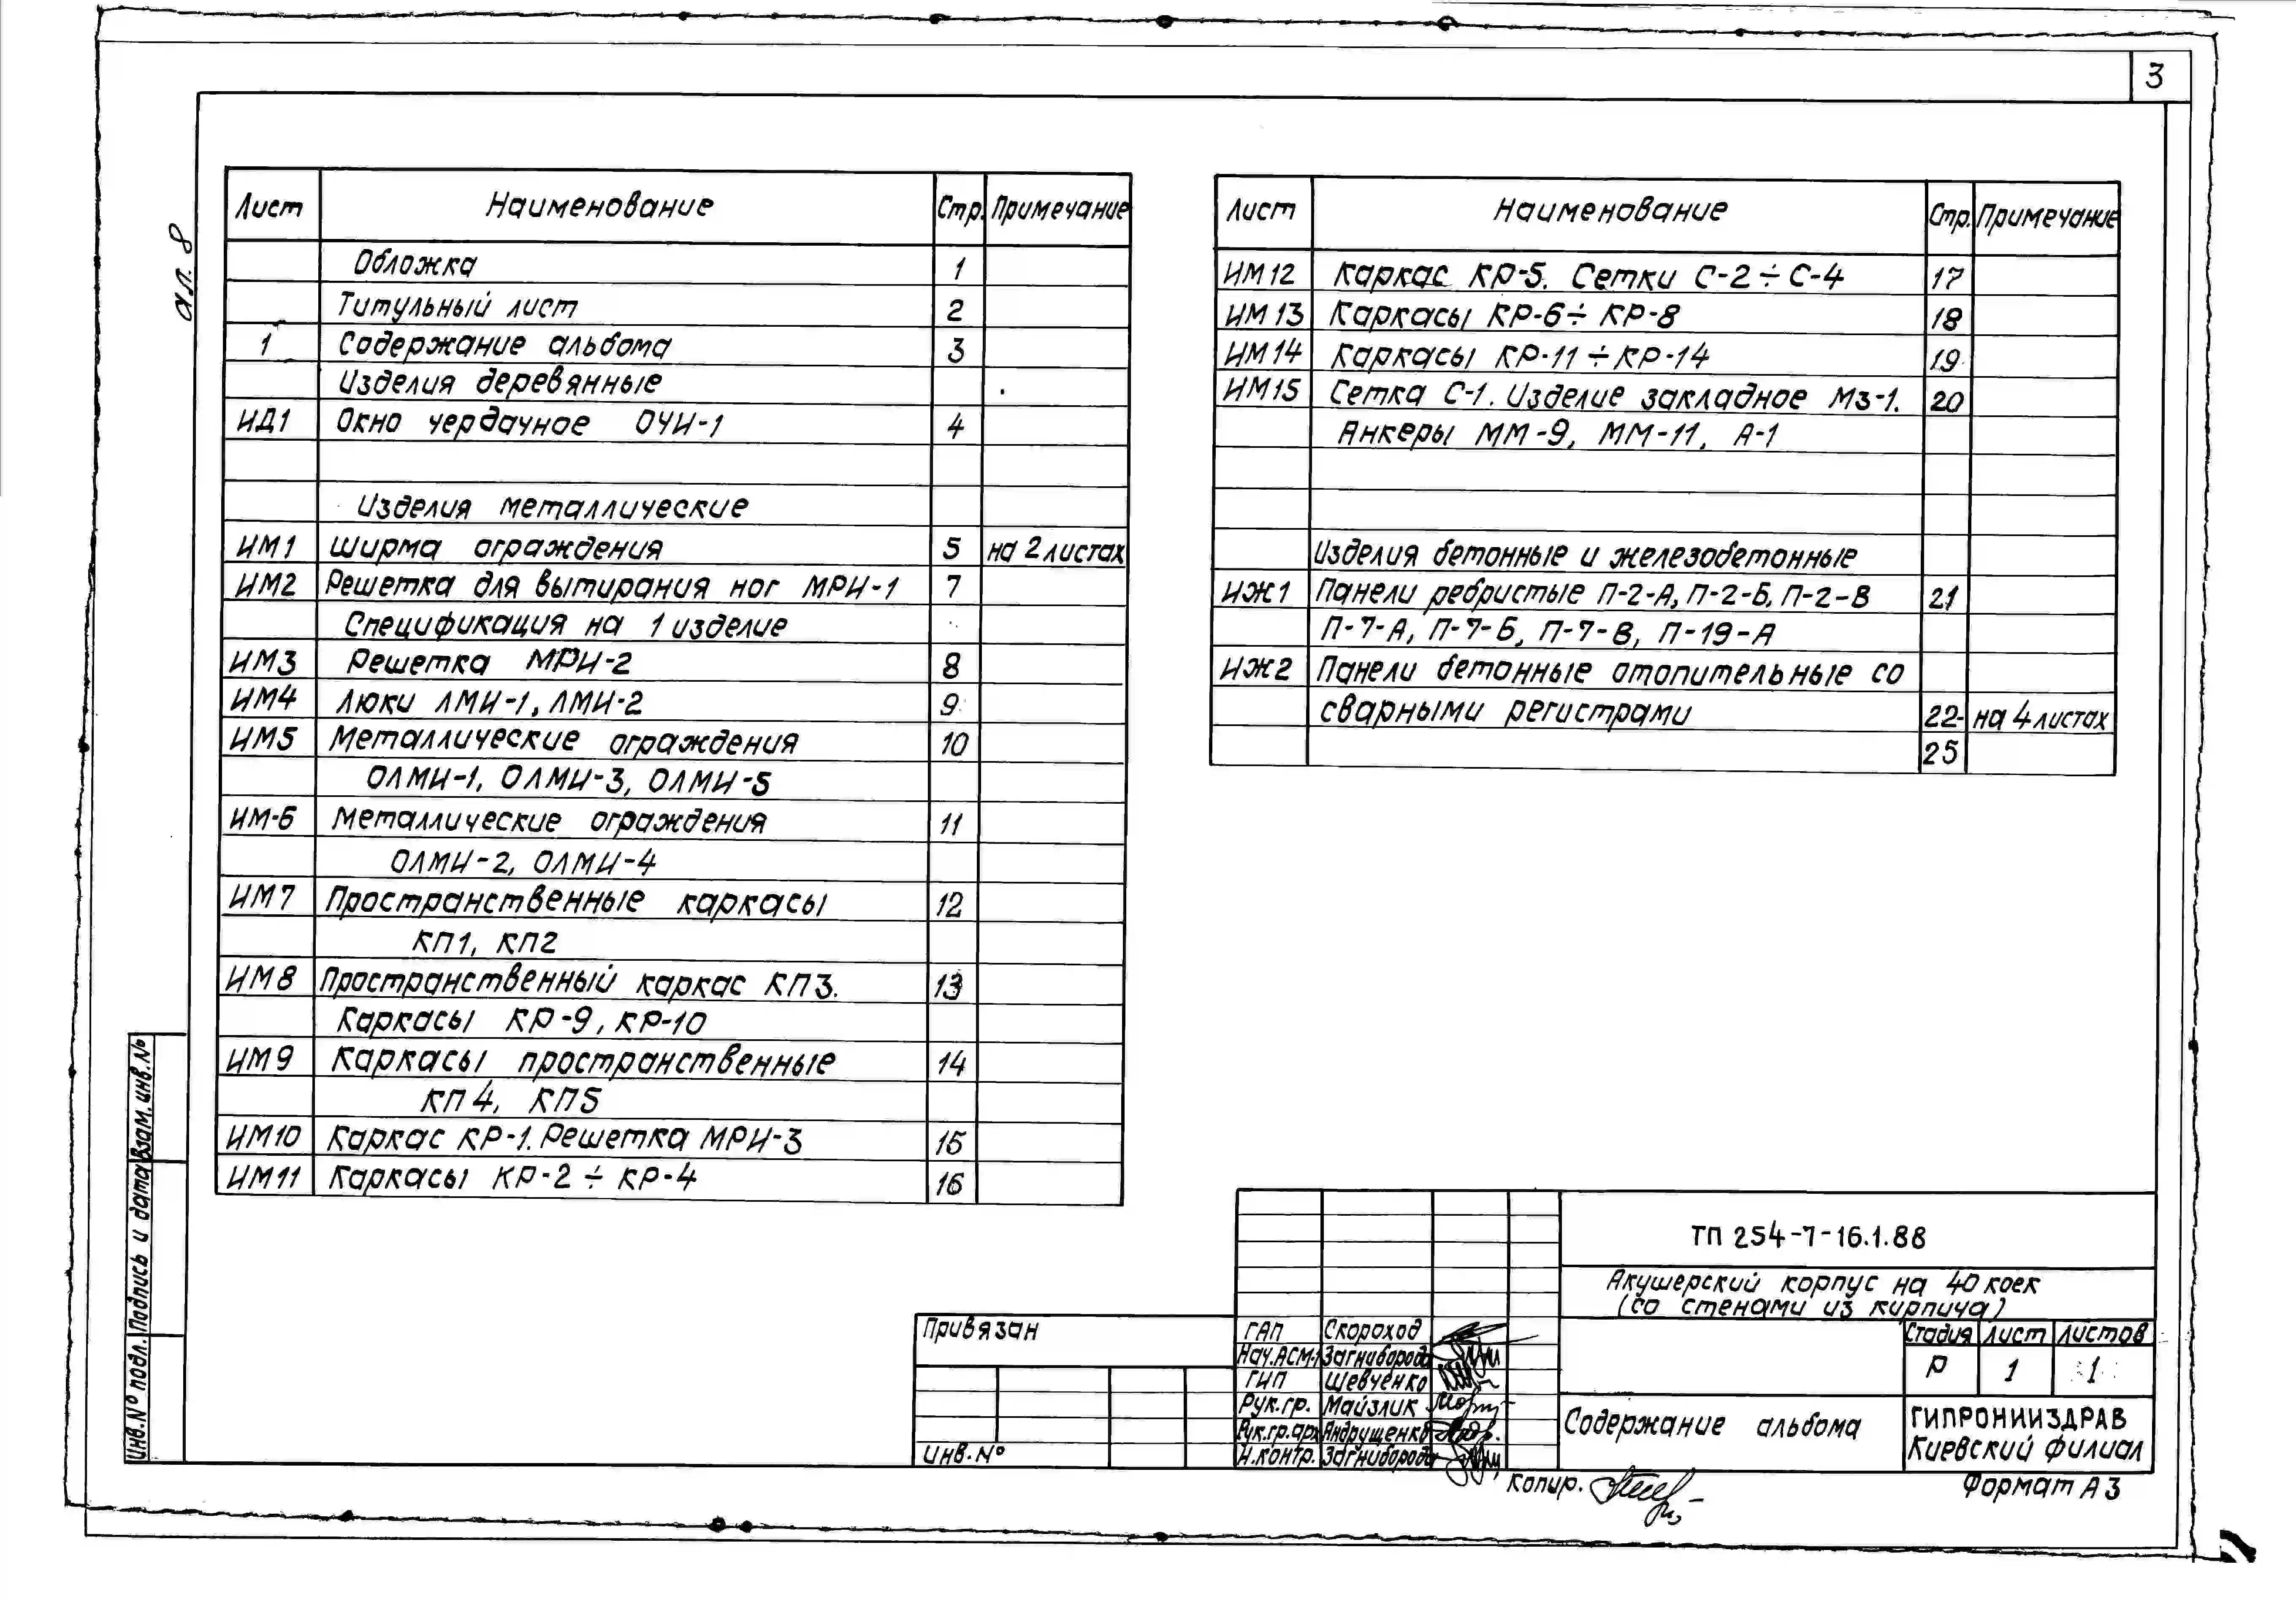 3
ал. 8
Лист Наименование Стр. Примечание
Обложка 1
Титульный лист 2
1 Содержание альбома 3
Изделия деревянные
ИД1 Окно чердачное ОЧИ-1 4
Изделия металлические
ИМ1 Ширма ограждения 5 на 2 листах
ИМ2 Решетка для вытирания ног МРИ-1 7
Спецификация на 1 изделие
ИМ3 Решетка МРИ-2 8
ИМ4 Люки ЛМИ-1, ЛМИ-2 9
ИМ5 Металлические ограждения 10
ОЛМИ-1, ОЛМИ-3, ОЛМИ-5
ИМ-6 Металлические ограждения 11
ОЛМИ-2, ОЛМИ-4
ИМ7 Пространственные каркасы 12
КП1, КП2
ИМ8 Пространственный каркас КП3. 13
Каркасы КР-9, КР-10
ИМ9 Каркасы пространственные 14
КП4, КП5
ИМ10 Каркас КР-1. Решетка МРИ-3 15
ИМ11 Каркасы КР-2 ÷ КР-4 16
Лист Наименование Стр. Примечание
ИМ12 Каркас КР-5. Сетки С-2 ÷ С-4 17
ИМ13 Каркасы КР-6 ÷ КР-8 18
ИМ14 Каркасы КР-11 ÷ КР-14 19
ИМ15 Сетка С-1. Изделие закладное МЗ-1. 20
Анкеры ММ-9, ММ-11, А-1
Изделия бетонные и железобетонные
ИЖ1 Панели ребристые П-2-А, П-2-Б, П-2-В 21
П-7-А, П-7-Б, П-7-В, П-19-А
ИЖ2 Панели бетонные отопительные со
сварными регистрами 22- на 4 листах
25
Взам. инв. №
Подпись и дата
Инв. № подл.
Привязан
Инв. №
ГАП Скороход
Нач. АСМ-1 Загниборода
ГИП Шевченко
Рук. гр. Майзлик
Рук. гр. арх. Андрущенко
Н. контр. Загниборода
ТП 254-7-16.1.88
Акушерский корпус на 40 коек
(со стенами из кирпича)
Стадия Лист Листов
Р 1 1
Содержание альбома
ГИПРОНИИЗДРАВ
Киевский филиал
Копир.
Формат А3